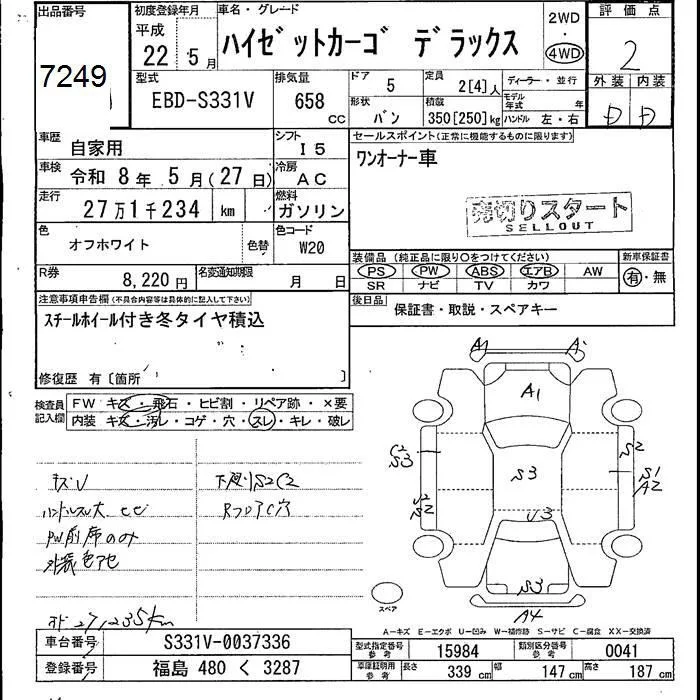 出品番号
7249
初度登録年月
平成
22 5月
車名・グレード
ハイゼットカーゴ デラックス
2WD
・
4WD
評価点
2
型式
EBD-S331V
排気量
658
cc
ドア 5
定員 2[4]人
ディーラー・並行
モデル年式 年
形状 バン
積載 350[250]kg
ハンドル 左・右
外装 内装
D D
車歴 自家用
シフト I5
セールスポイント(正常に機能するものに限ります)
ワンオーナー車
車検 令和 8年 5月(27日)
冷房 AC
走行 27万1千234 km
燃料 ガソリン
売切りスタート
SELLOUT
色 オフホワイト 色替
色コード W20
装備品 (純正品に限り○をつけてください)
PS PW ABS エアB AW
SR ナビ TV カワ
新車保証書
有・無
R券 8,220円
名変通知期限 月 日
後日品 保証書・取説・スペアキー
注意事項申告欄(不具合内容等は具体的に記入して下さい)
スチールホイール付き冬タイヤ積込
修復歴 有〔箇所 〕
検査員記入欄
FW キズ・飛石・ヒビ割・リペア跡・×要
内装 キズ・汚レ・コゲ・穴・スレ・キレ・破レ
A1 A
A1
C2
S3
S2
S1
A2
S3
S2
U3
S3
A4
キズU
下廻りS2C2
ハンドルスレ大
PW前席のみ
外装色アセ
スペア
A-キズ E-エクボ U-凹み W-補修跡 S-サビ C-腐食 XX-交換済
車台番号 S331V-0037336
登録番号 福島 480 く 3287
型式指定番号 参考 15984
類別区分番号 参考 0041
車庫証明用 参考 長さ 339 cm 幅 147 cm 高さ 187 cm